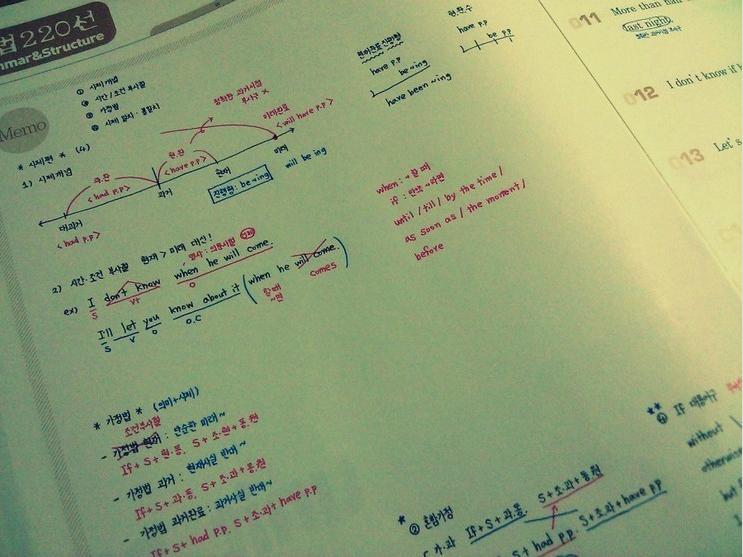 법 220선
mmar&Structure
Memo
① 시제개념
② 시간/조건 부사절
③ 가정법
④ 시제 일치·불일치
정확한 과거시점
부사구 X
* 시제편 * (4)
1) 시제개념
과.완
< had p.p >
현.완
< have p.p >
미래완료
< will have p.p >
대과거
< had p.p >
과거
현재
진행형: be ~ing
미래
will be ing
현재완료진행형
have p.p
be ~ing
have been ~ing
현.완.수
have p.p
be p.p
when : ~할 때
if : 만약 ~라면
until / till / by the time /
as soon as / the moment /
before
2) 시간·조건 부사절 현재 > 미래 대신!
명사: 의문사절
ex) I don't know when he will come.
S Vt O
I'll let you know about it (when he will come.)
comes
S V O O.C
할 때
~면
* 가정법 * (의미+시제)
조건부사절
- 가정법 현재 : 단순한 미래~
If + S + 원.동, S + 조.원 + 동.원
- 가정법 과거 : 현재사실 반대~
If + S + 과.동, S + 조.과 + 동.원
- 가정법 과거완료 : 과거사실 반대~
If + S + had p.p. S + 조.과 + have p.p
* ② 혼합가정
If + S + 과.동. S + 조.과 + 동.원
S + had p.p. S + 조.과 + have p.p
** ④ If 대용어구
without
otherwise
but
011 More than half
last night.
012 I don't know if h
013 Let's